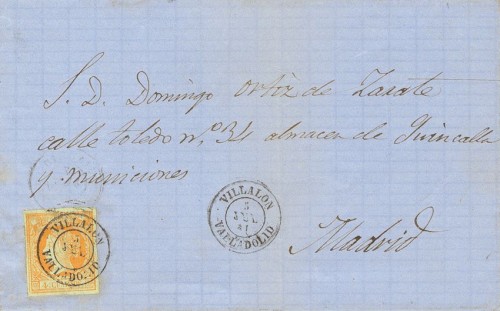 S. D. Domingo Ortiz de Zarate
calle toledo nº 34 almacen de Quincalla
y municiones
Madrid
VILLALON
5
JUL.
61
VALLADOLID
VILLALON
5
VALLADOLID